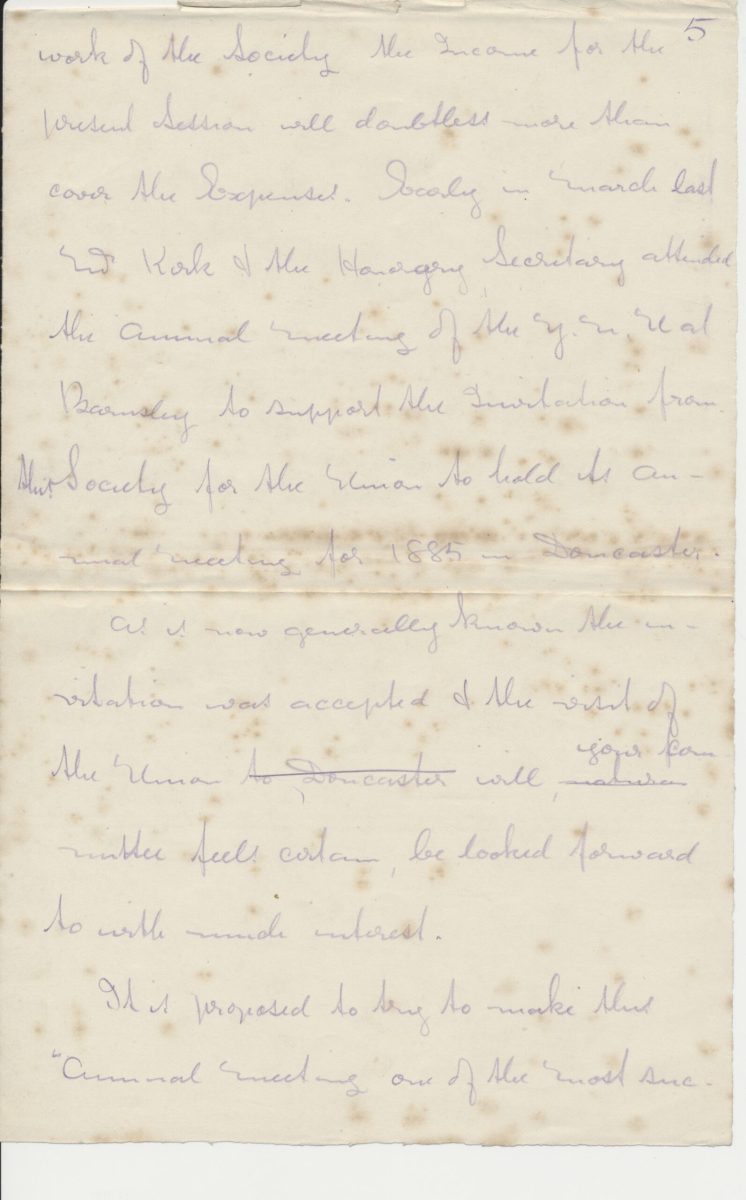 5
work of the Society the Income for the
present Session will doubtless more than
cover the Expenses. Early in March last
Mr Kirk & the Honorary Secretary attended
the Annual Meeting of the Y. N. U at
Barnsley to support the Invitation from
this Society for the Union to hold its An-
nual Meeting for 1885 in Doncaster.
As is now generally known the in-
vitation was accepted & the visit of
the Union to Doncaster will, your Com
mittee feels certain, be looked forward
to with much interest.
It is proposed to try to make this
"Annual Meeting one of the Most suc-